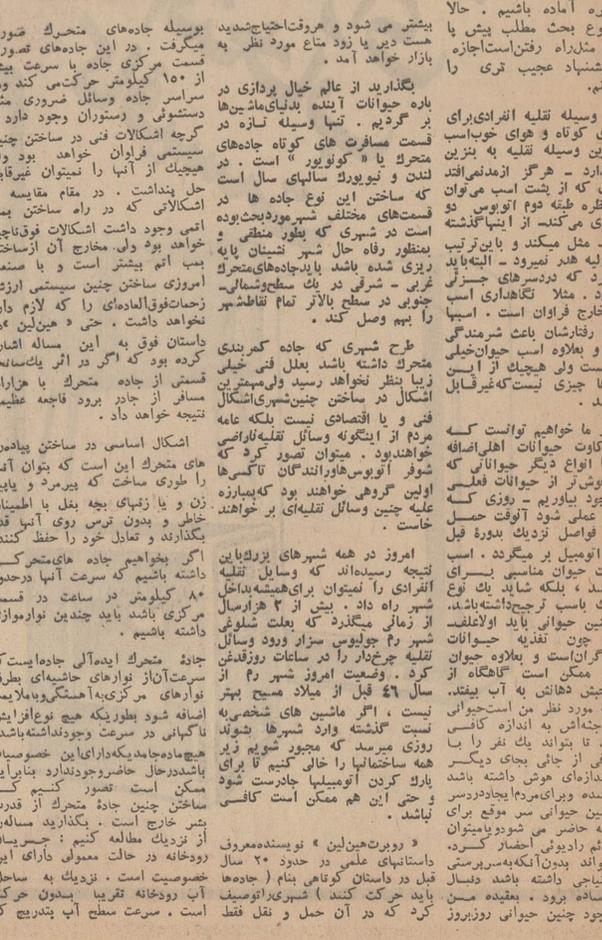 ره آماده باشیم . حالا
وع بحث مطلب پیش پا
مثل‌راه رفتن‌است‌اجازه
شنهاد عجیب تری را
وسیله نقلیه انفرادی‌برای
ی کوتاه و هوای خوب‌اسب
ین وسیله نقلیه به بنزین
دارد ـ هرگز ازمدنمی‌افتد
که از پشت اسب می‌توان
ظره طبقه دوم اتوبوس دو
ی می‌کند ـ از اینها گذشته
مثل میکند و باین‌ترتیب
لیه هدر نمیرود ـ البته‌باید
رد که دردسرهای جــزئی
د . مثلا نگاهداری اسب
خارج فراوان است . اسبها
رفتارشان باعث شرمندگی
و بعلاوه اسب حیوان‌خیلی
ست ولی هیچیك از ایــن
ها چیزی نیست‌که‌غیرقــابل
ما خواهیم توانست کــه
کاوت حیوانات اهلی‌اضافه
ا انواع دیگر حیواناتی که
وش‌تر از حیوانات فعلــی
جود بیاوریم ـ روزی کــه
عملی شود آنوقت حمــل
فواصل نزدیك بدورۀ قبل
اتومبیل بر میگردد . اسب
ت حیوان مناسبی بــرای
سد ، بلکه شاید یك نوع
ك باسب ترجیح‌داشته‌باشد.
نین حیوانی باید اولاعلف
چون تغذیه حیــوانات
گران‌است و بعلاوه حیوان
ممکن است گاهگاه از
حیش دهانش به آب بیفتد.
مورد نظر من است‌حیوانی
جثه‌اش به اندازه کافــی
د تا بتواند یك نفر را بــا
ی از جائی بجای دیگــر
ندازه‌ای هوش داشته باشد
نده وبرای‌مردم‌ایجاددردسر
نین حیوانی سر موقع برای
به حاضر می شودویامیتوان
ئم رادیوئی احضار کــرد.
واند بدون‌آنکه‌به‌سرپرستی
تیاجی داشته باشد دنبــال
ساده برود . بعقیده مــن
جود چنین حیوانی روزبروز
بیشتر می شود و هروقت‌احتیاج‌شدید
هست دیر یا زود متاع مورد نظر به
بازار خواهد آمد .
بگذارید از عالم خیال پردازی در
باره حیوانات آینده بدنیای‌ماشین‌ها
بر گردیم . تنها وسیله تــازه در
قسمت مسافرت های کوتاه جاده‌های
متحرك یا « کونویور » است . در
لندن و نیویورك سالهای سال است
که ساختن این نوع جاده ها در
قسمت‌های مختلف شهر‌موردبحث‌بوده
است در شهری که بطور منطقی و
بمنظور رفاه حال شهر نشینان پایه
ریزی شده باشد باید‌جاده‌های‌متحرك
غربی ـ شرقی در یك سطح‌وشمالی‌ـ
جنوبی در سطح بالاتر تمام نقاط‌شهر
را بهم وصل کند .
طرح شهری که جاده کمربندی
متحرك داشته باشد بعلل فنی خیلی
زیبا بنظر نخواهد رسید ولی‌مهمترین
اشکال در ساختن چنین‌شهری‌اشکال
فنی و یا اقتصادی نیست بلکه عامه
مردم از اینگونه وسائل نقلیه‌ناراضی
خواهندبود . میتوان تصور کرد که
شوفر اتوبوس‌هاورانندگان تاکسی‌ها
اولین گروهی خواهند بود که‌بمبارزه
علیه چنین وسائل نقلیه‌ای بر خواهند
خاست .
امروز در همه شهرهای بزرك‌باین
نتیجه رسیده‌اند که وسایل نقلیه
انفرادی را نمیتوان برای‌همیشه‌بداخل
شهر راه داد . بیش از ۲ هزارسال
از زمانی میگذرد که بعلت شلوغی
شهر رم جولیوس سزار ورود وسائل
نقلیه چرخ‌دار را در ساعات روزقدغن
کرد . وضعیت امروز شهر رم از
سال ٤٦ قبل از میلاد مسیح بهتر
نیست ، اگر ماشین های شخصی‌به
نسبت گذشته وارد شهرها بشوند
روزی میرسد که مجبور شویم زیر
همه ساختمانها را خالی کنیم تا برای
پارك کردن اتومبیلها جادرست شود
و حتی این هم ممکن است کافــی
نباشد .
« روبرت‌هین‌لین » نویسنده‌معروف
داستانهای علمی در حدود ۲۰ سال
قبل در داستان کوتاهی بنام ( جاده‌ها
باید حرکت کنند ) شهری‌راتوصیف
کرد که در آن حمل و نقل فقط
بوسیله جاده‌های متحرك صور
میگرفت . در این جاده‌های تصور
قسمت مرکزی جاده با سرعت بیش
از ۱۵۰ کیلومتر حرکت‌می کند و
سراسر جاده وسائل ضروری مث
دستشوئی و رستوران وجود دارد
گرچه اشکالات فنی در ساختن چنین
سیستمی فراوان خواهد بود ول
هیچیك از آنها را نمیتوان غیرقا
حل پنداشت . در مقام مقایسه
اشکالاتی که در راه ساختن بمب
اتمی وجود داشت اشکالات فوق‌ناچیز
خواهد بود ولی مخارج آن ازساخت
بمب اتم بیشتر است و با صنعت
امروزی ساختن چنین سیستمی ارزش
زحمات‌فوق‌العاده‌ای را که لازم دار
نخواهد داشت . حتی « هین‌لین »
داستان فوق به این مساله اشار
کرده بود که اگر در اثر یك‌سانحه
قسمتی از جاده متحرك با هزارا
مسافر از جادر برود فاجعه عظیم
نتیجه خواهد داد .
اشکال اساسی در ساختن پیاده‌رو
های متحرك این است که بتوان آنه
را طوری ساخت که پیرمرد و یاپیر
زن و یا زنهای بچه بغل با اطمینان
خاطر و بدون ترس روی آنها قد
بگذارند و تعادل خود را حفظ کنند
اگر بخواهیم جاده های‌متحرکــ
داشته باشیم که سرعت آنها درحدو
۸۰ کیلومتر در ساعت در قسمت
مرکزی باشد باید چندین نوارموازی
داشته باشیم .
جادۀ متحرك ایده‌آلی جاده‌ایست‌که
سرعت‌آن‌از نوارهای حاشیه‌ای بطرف
نوارهای مرکزی‌به‌آهستگی‌وبملایمت
اضافه شود بطوریکه هیچ نوع‌افزایش
ناگهانی در سرعت وجودنداشته‌باشد
هیچ‌ماده‌جامدیکه‌دارای‌این خصوصیات
باشددرحال حاضروجودندارد بنابراین
ممکن است تصور کنیــم کــه
ساختن چنین جادۀ متحرك از قدرت
بشر خارج است . بگذارید مساله‌را
از نزدیك مطالعه کنیم : جــریــان
رودخانه در حالت معمولی دارای این
خصوصیت است . نزدیك به ساحل
آب رودخانه تقریبا بــدون حرکت
است . سرعت سطح آب بتدریج ک